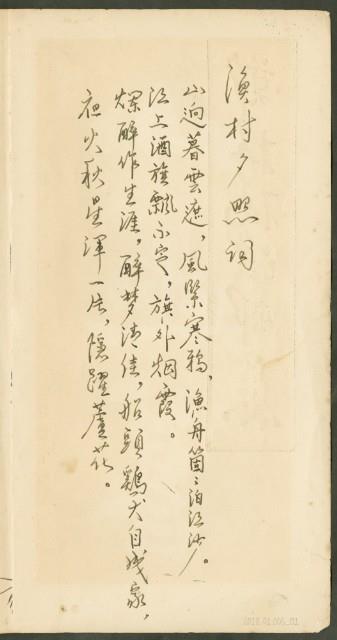 漁村夕照詞
山迥暮雲遮，風緊寒鴉，漁舟箇〻泊江沙。
江上酒旗飄不定，旗外烟霞。
爛醉作生涯，醉夢清佳，船頭鷄犬自成家，
夜火秋星渾一片，隱躍蘆花。
2018.01.005_01